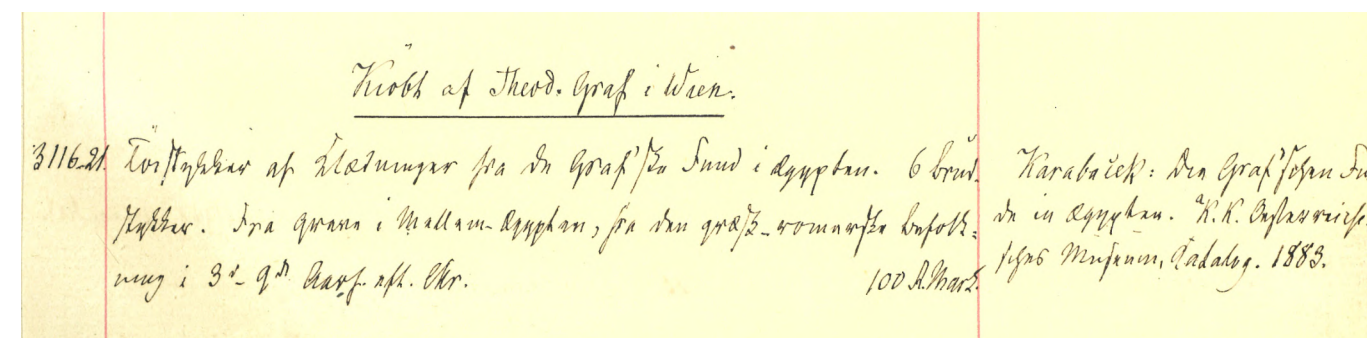 Kiöbt af Theod. Graf i Wien.
3116-21. Töistykker af Klædninger fra de Graf'ske Fund i Ægypten. 6 Brud-
stykker. Fra Grave i Mellem-Ægypten, fra den græsk-romerske Befolk-
ning i 3d-9de Aarh. eft. Chr. 100 R.Mark.
Karabaček: Die Graf'schen Fu
de in Ægypten. K.K. Oesterreichi-
sches Museum, Catalog. 1883.